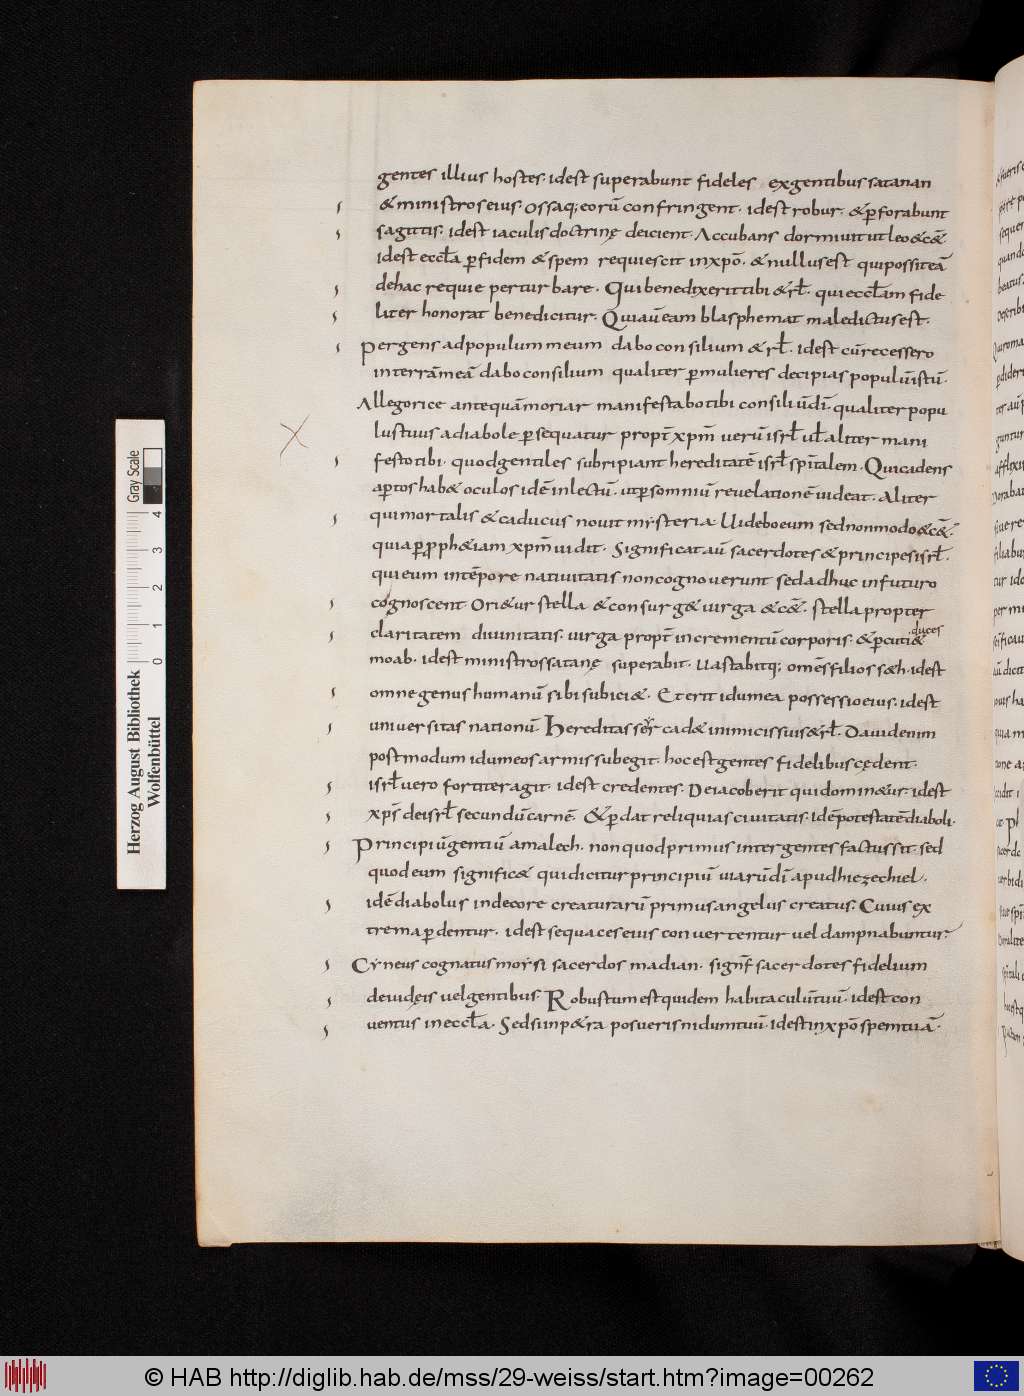 gentes illius hostes· idest superabunt fideles exgentibus satanan
& ministros eius· ossaq; eorū confringent· idest robur· & ꝑforabunt
sagittis· idest iaculis doctrinę deicient· Accubans dormiuit ut leo & c&̄
idest eccła ꝑ fidem & spem requiescit in xp̄o· & nullus est qui possit eā
dehac requie perturbare· Qui benedixerit tibi & rł· qui eccłam fide
liter honorat benedicitur· Qui aū eam blasphemat maledictus est·
Pergens ad populum meum dabo consilium & rł· idest cū recessero
in terrā meā dabo consilium qualiter ꝑ mulieres decipias populū istū·
Allegorice antequā moriar manifestabo tibi consiliū dī· qualiter popu
lus tuus a diabole ꝑsequatur propt̄ xp̄m̄ uerū isrł uł aliter mani
festo tibi· quod gentiles subripiant hereditatē isrł sp̄italem· Qui cadens
aꝑtos hab& oculos idē in lectū· ut ꝑ somniū reuelationē uideat· Aliter
qui mortalis & caducus nouit mysteria· Uidebo eum sed non modo & c&̄·
quia ꝑ proph&iam xp̄m̄ uidit· Significat aū sacerdotes & principes isrł·
qui eum intēpore natiuitatis non cognouerunt sed adhuc in futuro
cognoscent Ori&ur stella & consurg& uirga & c&̄· stella propter
claritatem diuinitatis· uirga propt̄ incrementū corporis· & ꝑcuti& ·duces
moab· idest ministros satanę superabit· Uastabitq; omēs filios s&h· idest
omne genus humanū sibi subici&· Et erit idumea possessio eius· idest
uniuersitas nationū· Hereditas seir cad& inimicis suis & rł· Dauid enim
postmodum idumeos armis subegit· hoc est gentes fidelibus cędent·
isrł uero fortiter agit· idest credentes· De iacob erit qui domin&ur· idest
xp̄s̄ de isrł secundū carnē· & ꝑdat reliquias ciuitatis· idē potestatē diaboli·
Principiū gentiū amalech· non quod primus inter gentes factus sit sed
quod eum signific& qui dicitur principiū uiarū dī apud hiezechiel·
idē diabolus indecore creaturarū primus angelus creatus· Cuius ex
trema ꝑdentur· idest sequaces eius conuertentur uel dampnabuntur·
Cyneus cognatus moysi sacerdos madian· signf̄ sacerdotes fidelium
de iudęis uel gentibus· Robustum est quidem habitaculū tuū· idest con
uentus in eccła· Sed si in p&ra posueris nidum tuū· idest in xp̄o spem tuā·
Herzog August Bibliothek
Wolfenbüttel
Gray Scale
0 1 2 3 4
© HAB http://diglib.hab.de/mss/29-weiss/start.htm?image=00262